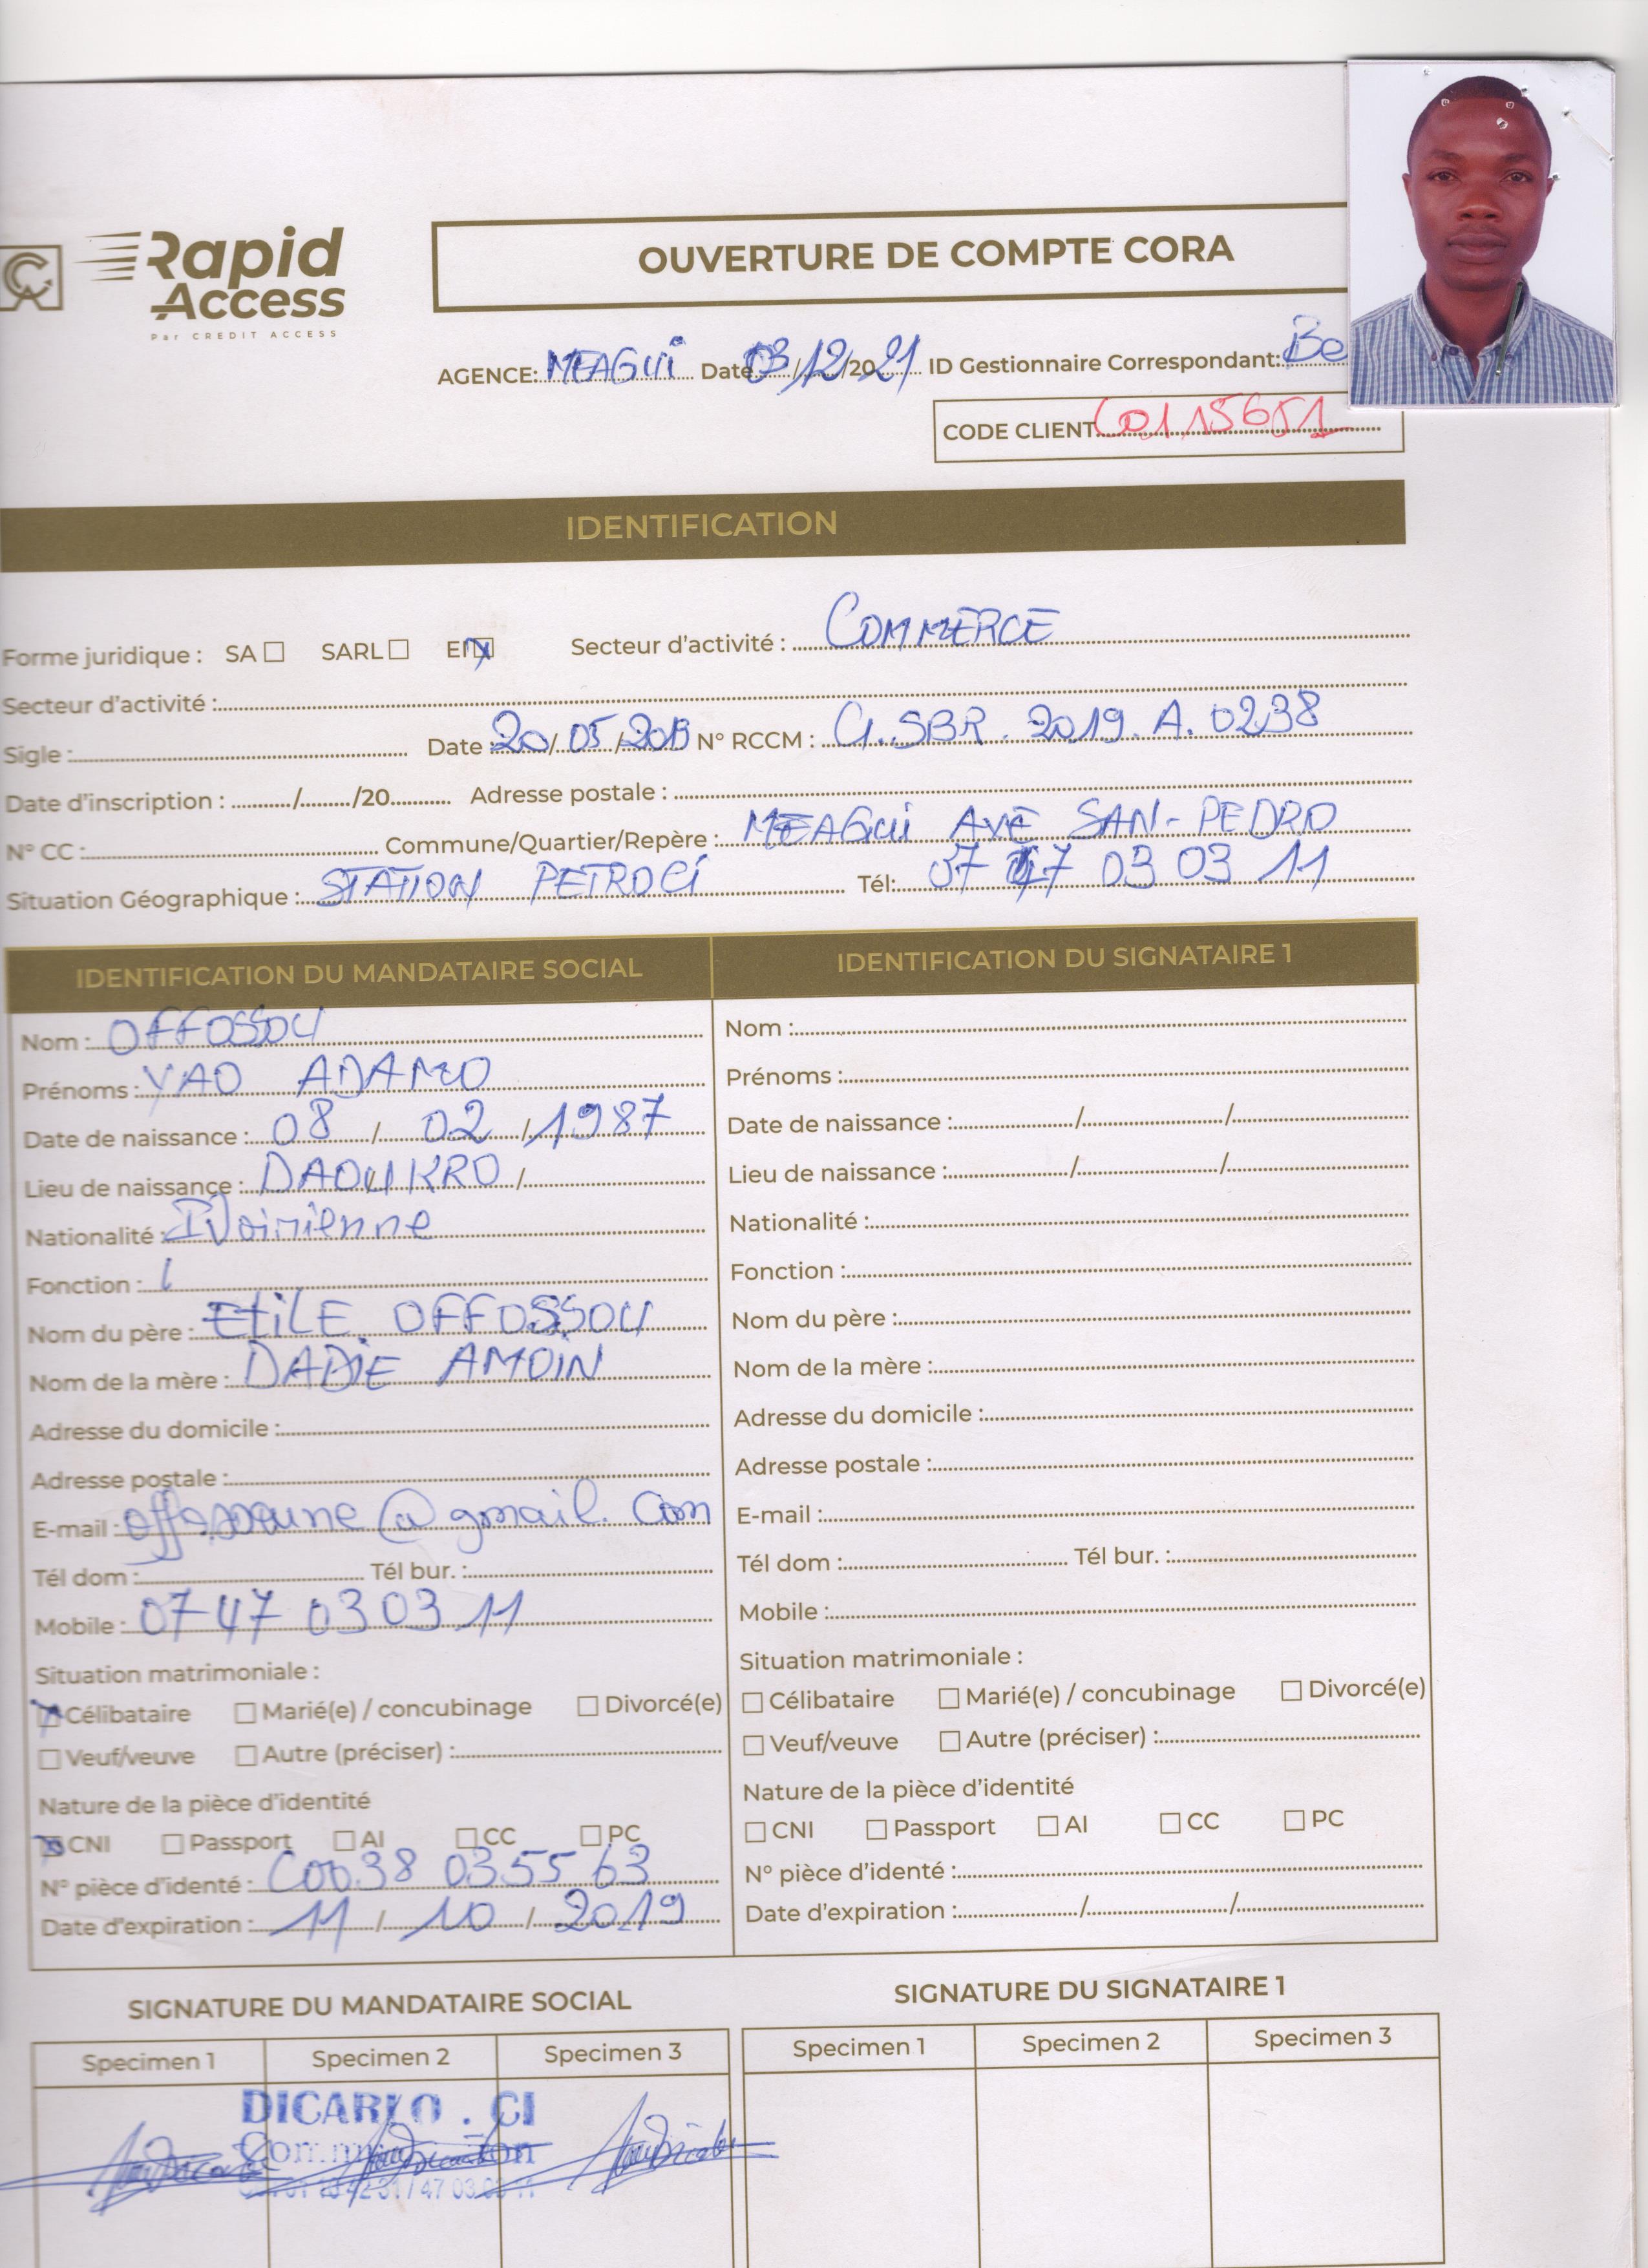 Rapid
Access
Par CREDIT ACCESS
OUVERTURE DE COMPTE CORA
AGENCE: MEAGUI Date 03/12/2021 ID Gestionnaire Correspondant: Be
CODE CLIENT C0115651
IDENTIFICATION
Forme juridique : SA SARL EI Secteur d'activité : COMMERCE
Secteur d'activité :
Sigle : Date : 20/05/2019 N° RCCM : CI.SBR.2019.A.0238
Date d'inscription : / /20 Adresse postale :
N° CC : Commune/Quartier/Repère : MEAGUI AXE SAN-PEDRO
Situation Géographique : STATION PETROCI Tél: 07 47 03 03 11
IDENTIFICATION DU MANDATAIRE SOCIAL
Nom : OFFOSSOU
Prénoms : YAO ADAMO
Date de naissance : 08 / 02 / 1987
Lieu de naissance : DAOUKRO /
Nationalité : IVoirienne
Fonction :
Nom du père : ETILE OFFOSSOU
Nom de la mère : DADIE AMOIN
Adresse du domicile :
Adresse postale :
E-mail : @gmail.com
Tél dom : Tél bur. :
Mobile : 07 47 03 03 11
Situation matrimoniale :
Célibataire Marié(e) / concubinage Divorcé(e)
Veuf/veuve Autre (préciser) :
Nature de la pièce d'identité
CNI Passport AI CC PC
N° pièce d'identé : C0038 0355 63
Date d'expiration : 11 / 10 / 2019
IDENTIFICATION DU SIGNATAIRE 1
Nom :
Prénoms :
Date de naissance : / /
Lieu de naissance : / /
Nationalité :
Fonction :
Nom du père :
Nom de la mère :
Adresse du domicile :
Adresse postale :
E-mail :
Tél dom : Tél bur. :
Mobile :
Situation matrimoniale :
Célibataire Marié(e) / concubinage Divorcé(e)
Veuf/veuve Autre (préciser) :
Nature de la pièce d'identité
CNI Passport AI CC PC
N° pièce d'identé :
Date d'expiration : / /
SIGNATURE DU MANDATAIRE SOCIAL
Specimen 1 Specimen 2 Specimen 3
DICARLO . CI
SIGNATURE DU SIGNATAIRE 1
Specimen 1 Specimen 2 Specimen 3